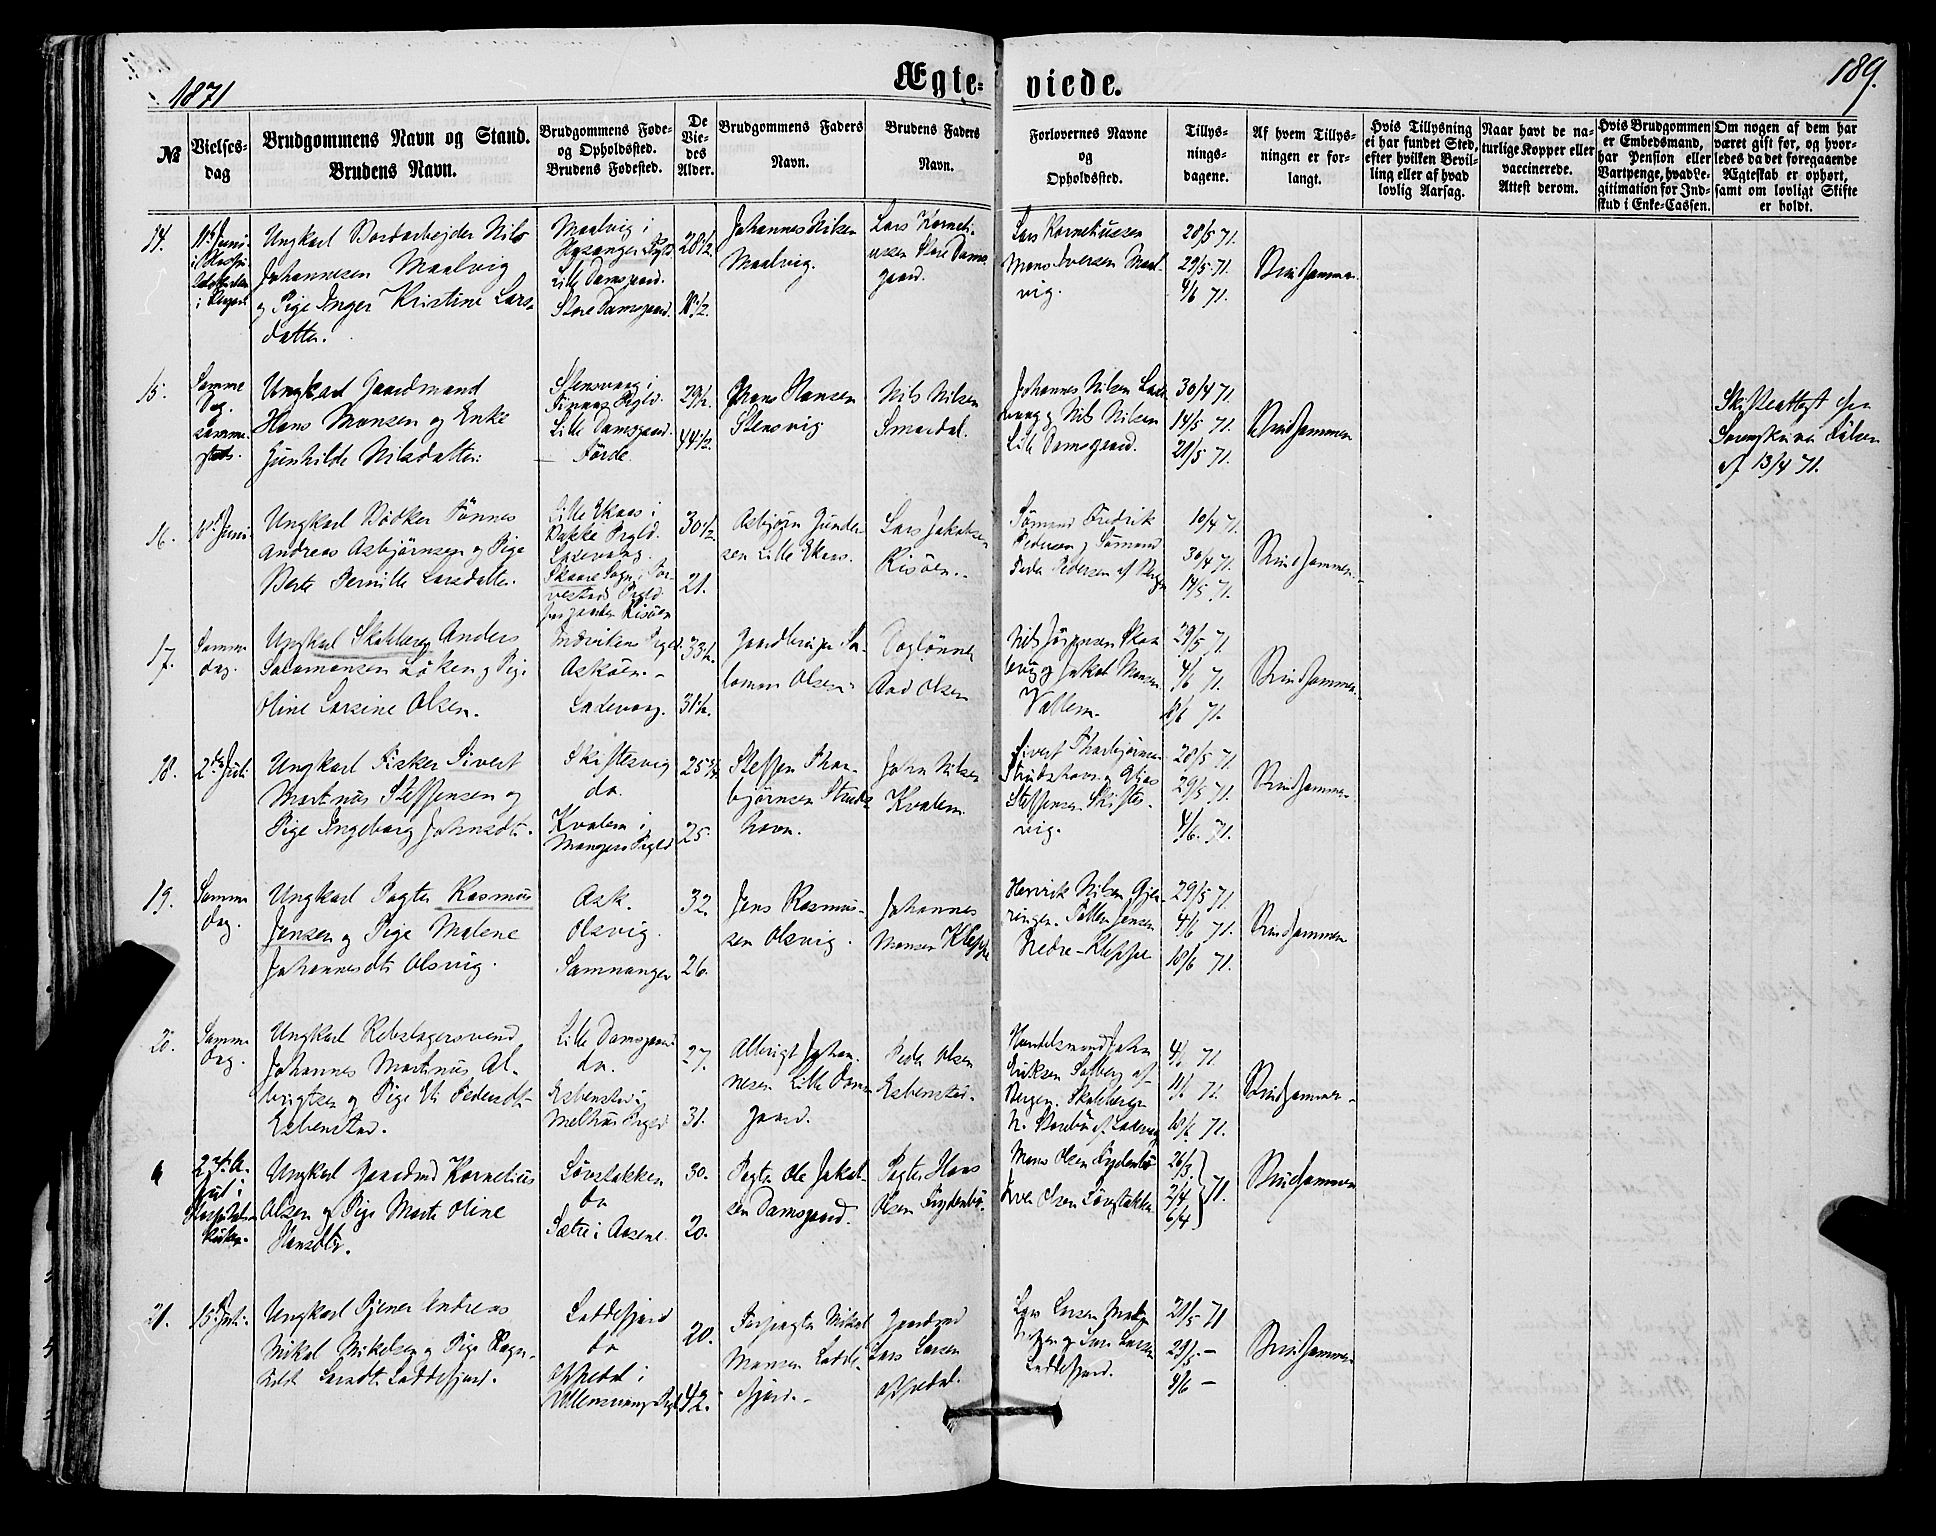 1871
Ægte-
viede.
189.
№
Vielses-
dag
Brudgommens Navn og Stand.
Brudens Navn.
Brudgommens Føde-
og Opholdssted.
Brudens Fødested.
De
Vie-
des
Alder.
Brudgommens Faders
Navn.
Brudens Faders
Navn.
Forlovernes Navne
og
Opholdssted.
Tillys-
nings-
dagene.
Af hvem Tillys-
ningen er for-
langt.
Hvis Tillysning
ei har fundet Sted,
efter hvilken Bevil-
ling eller af hvad
lovlig Aarsag.
Naar havt de na-
turlige Kopper eller
vaccinerede.
Attest derom.
Hvis Brudgommen
er Embedsmand,
har Pension eller
Vartpenge, hvad Le-
gitimation for Ind-
skud i Enke-Cassen.
Om nogen af dem har
været gift før, og hvor-
ledes da det foregaaende
Ægteskab er ophørt,
samt om lovligt Skifte
er holdt.
14.
Ungkarl Bordarbejder Nils
Johannesen Maalvig
og Pige Inger Kristine Lars-
datter.
Maalvig i
Lille Damsgaard.
Store Damsgaard.
28½.
18½.
Johannes Nilsen
Maalvig.
Lars Korneli-
ussen Store Dams-
gaard.
Lars Korneliussen
Mons Iversen Maal-
vig.
28/5 71.
29/5 71.
4/6 71.
Brudgommen
15.
Samme
Dag.
samme
steds.
Ungkarl Gaardmand
Hans Monsen og Enke
Gunhilde Nilsdatter.
Stensvaag i
Finnaas Prgld.
Lille Damsgaard.
Førde
29½.
44½.
Hansen
Stensvig
Nils Nilsen
Smørdal.
Johannes Nilsen
og Nils Nilsen
Lille Damsgaard.
30/4 71.
14/5 71.
21/5 71.
Brudgommen
Skifteattest fra
af 13/4 71.
16.
Juni
Ungkarl Bødker Tønnes
Andreas Asbjørnsen og Pige
Berte Pernille Larsdatter.
Lille Ekaas i
Bakke Prgld.
Ladevaag.
Skaare Sogn i Tor-
vestad Prgld.
Risøen
30½.
21.
Asbjørn Gunder-
sen Lille Ekaas.
Lars Jakobsen
Risøen.
Sømand Fredrik
Pedersen og Sømand
Peder Pedersen af Bergen
10/4 71.
30/4 71.
14/5 71.
Brudgommen
17.
Samme
Dag.
Ungkarl Skoleberg Anders
Salomonsen Løken og Pige
Oline Larsine Olsen.
Askøen.
Ladevaag.
33½.
31½.
Gaardbruger Sa-
lomon Olsen.
Daglønner
Olsen
Nils Jørgensen
og Jakob Monsen
Vallem.
29/5 71.
4/6 71.
71.
Brudgommen
18.
2den Juli
Ungkarl Fisker Sivert
Martinus Steffensen og
Pige Ingeborg Johnsdt.
Skiftesvig
do.
Kvalem i
Mangers Prgld
25
25.
Steffen Thor-
bjørnsen Struds-
havn.
John Nilsen
Kvalem
Sivert Thorbjørnsen
Strudshavn og Elias
Steffensen Skiftes-
vig.
28/5 71.
29/5 71.
4/6 71.
Brudgommen
19.
Samme
Dag.
Ungkarl Pagter Rasmus
Jensen og Pige Malene
Johannesdt. Olsvig.
Ask.
Olsvig.
Samnanger
32.
26.
Jens Rasmus-
sen Olsvig.
Johannes
Monsen Kleppe
Henrik Nilsen
Jensen
Nedre-Kleppe
29/5 71.
4/6 71.
18/6 71.
Brudgommen
20.
Samme
Dag.
Ungkarl Rebslagersvend
Johannes Martinus Al-
brigtsen og Pige Eli Pedersdt.
Esbenstad.
Lille Damsgaard
do.
Esbenstad i
Melhus Prgld
27.
31.
Albrigt Johan-
nesen Lille Dams-
gaard.
Peder Olsen
Esbenstad.
Handelsmand John
Eriksen Solberg af
Bergen.
4/6 71.
11/6 71.
18/6 71.
Brudgommen
Juli i
Ungkarl Gaardmd Kornelius
Olsen og Pige Marte Oline
Hansdtr.
Løvstakken
do
Sætre i Aasene
30.
20.
Pagter Ole Jakob-
sen Damsgaard.
Pagter Hans
Olsen Frydenbø.
Mons Olsen Frydenbø
Iver Olsen Løvstakken
26/3
2/4
6/4
71.
Brudgommen
21.
15de Juli.
Ungkarl Tjener Andreas
Mikal Mikelsen og Pige Ragn-
hild Larsdt. Laddefjord.
Laddefjord
do
Ophedal i
Ullensvang Prgld
20.
42.
Forpagter Mikal
Monsen Ladde-
fjord.
Gaardmd
Lars Larsen
Opedal.
Larsen
og Lars Larsen
Laddefjord.
21/5 71
29/5 –
4/6 –
Brudgommen